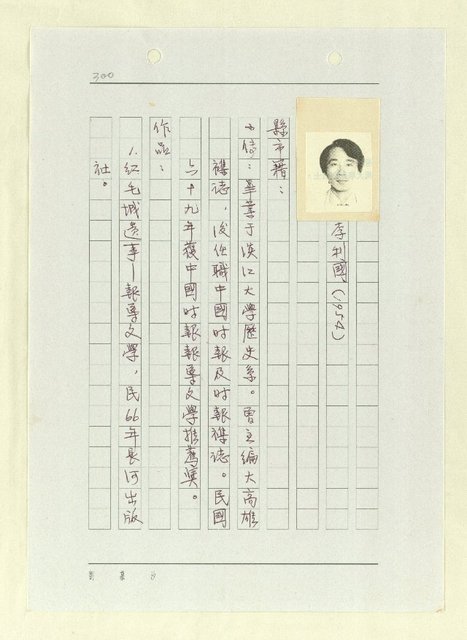 300
李利國(1954)
縣市籍：
小傳：畢業于淡江大學歷史系。曾主編大高雄
雜誌，後任職中國时報及时報雜誌。民國
六十九年獲中國时報報導文學推薦獎。
作品：
1.紅毛城遗事—報導文學，民66年長河出版
社。
劉慕沙